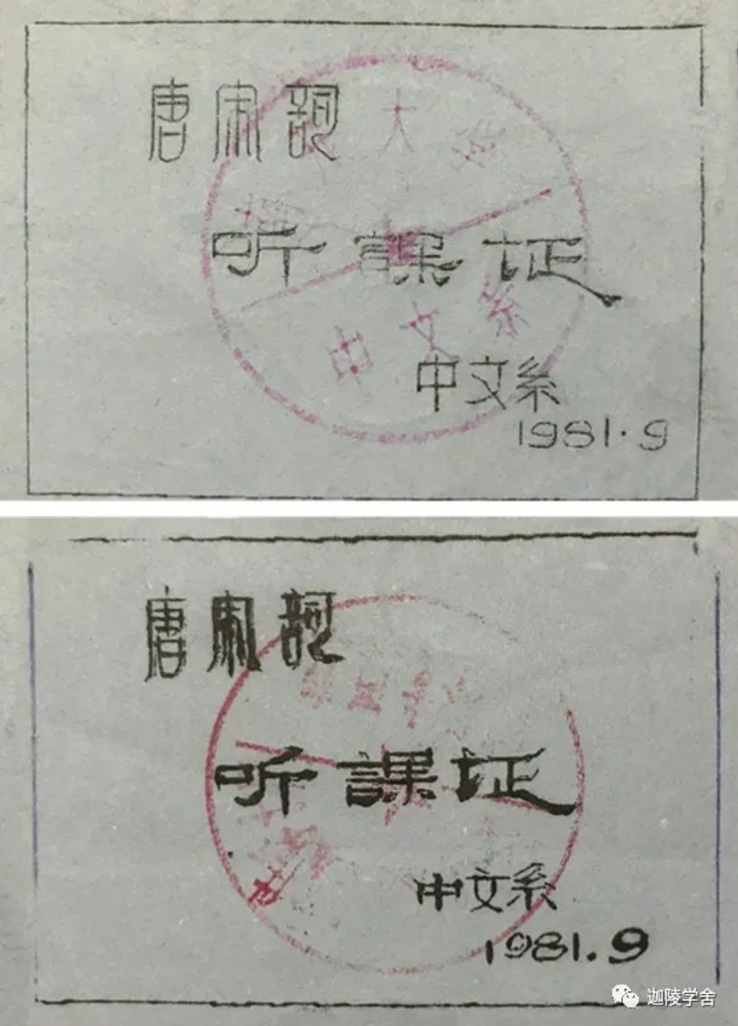 唐宋詞
听課证
中文系
中文系
1981.9
唐宋詞
听課证
中文系
1981.9
迦陵学舍